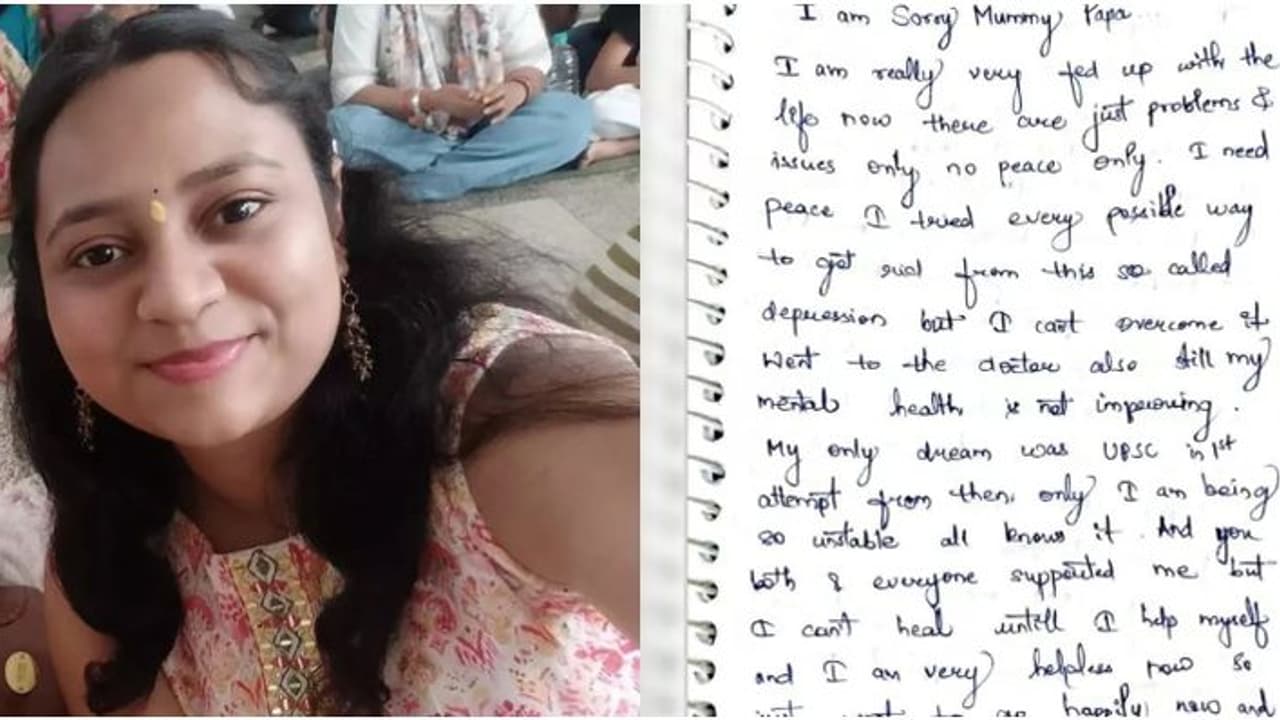 I am Sorry Mummy Papa
I am really very fed up with the
life now there are just problems &
issues only no peace only. I need
peace I tried every possible way
to get rid from this so called
depression but I can't overcome it
went to the doctor also still my
mental health is not improving.
My only dream was UPSC in 1st
attempt from then only I am being
so unstable all knows it. And you
both & everyone supported me but
I can't heal untill I help myself
and I am very helpless now so
happily now and